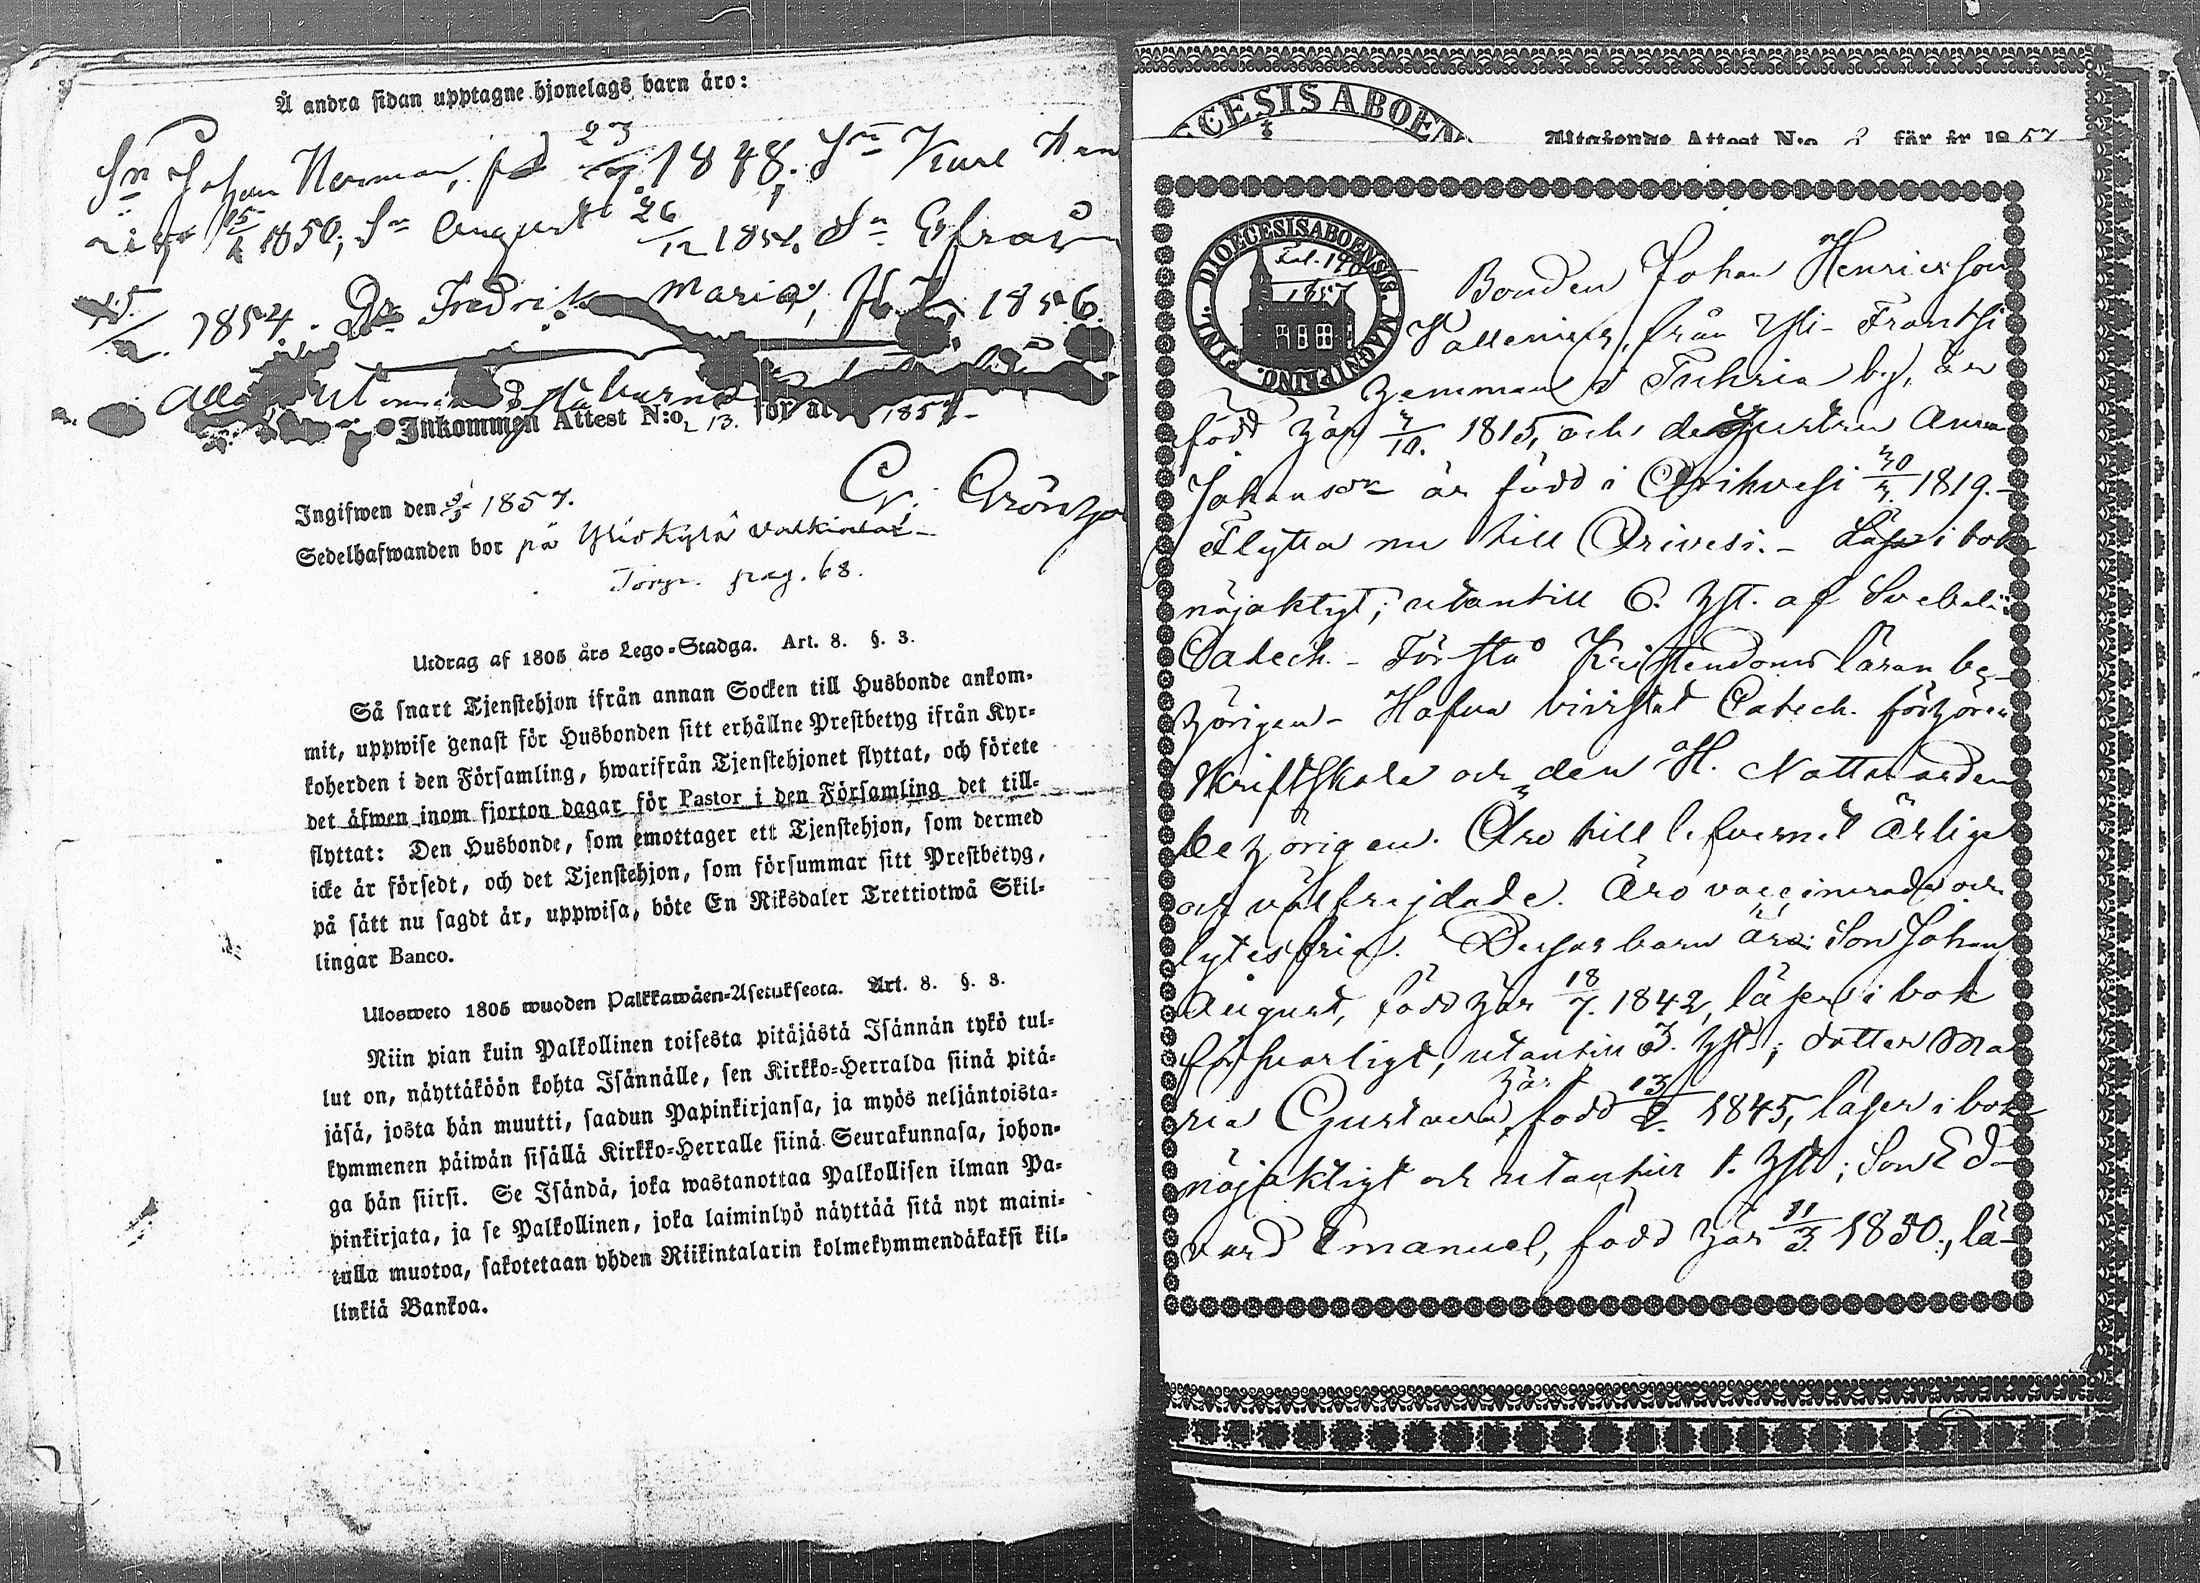 Å andra sidan upptagne hjonelags barn äro:
Sn Johan Herman, fd 23/ 1848; Sn Karl Hen
rik 1850; Sn August 26/12 1851. Sn Efraim
1854. Dr Fredrika Maria, 1856.
Alla
Inkommen Attest N:o 13. för år 1857
G. Grön
Ingifwen den 1857.
Sedelhafwanden bor på Yliskylä
Torp. pag. 68.
Utdrag af 1805 års Lego-Stadga. Art. 8. §. 3.
Så snart Tjenstehjon ifrån annan Socken till Husbonde ankom-
mit, uppwise genast för Husbonden sitt erhållne Prestbetyg ifrån Kyr-
koherden i den Församling, hwarifrån Tjenstehjonet flyttat, och förete
det äfwen inom fjorton dagar för Pastor i den Församling det till-
flyttat: Den Husbonde, som emottager ett Tjenstehjon, som dermed
icke är försedt, och det Tjenstehjon, som försummar sitt Prestbetyg,
på sätt nu sagdt är, uppwisa, böte En Riksdaler Trettiotwå Skil-
lingar Banco.
Ulosweto 1805 wuoden Palkkawäen-Asetuksesta. Art. 8. §. 3.
Niin pian kuin Palkollinen toisesta pitäjästä Isännän tykö tul-
lut on, näyttäköön kohta Isännälle, sen Kirkko-Herralda siinä pitä-
jäsä, josta hän muutti, saadun Papinkirjansa, ja myös neljäntoista-
kymmenen päiwän sisällä Kirkko-Herralle siinä Seurakunnasa, johon-
ga hän siirsi. Se Isändä, joka wastanottaa Palkollisen ilman Pa-
pinkirjata, ja se Palkollinen, joka laiminlyö näyttää sitä nyt maini-
tulla muotoa, sakotetaan yhden Riikintalarin kolmekymmendäkaksi kil-
linkiä Bankoa.
CESIS ABOEN
Utgående Attest N:o 2 för år 1857
DIOECESIS ABOENSIS. MAGN. PRINC. FINL.
Fol. 190
1857
Bonden Johan Henricsson
från Yli-Frantsi
hemman i Tuhria by, är
född här 1815, och des hustru Anna
Johansdr är född i Orihvesi 1819.
Flytta nu till Orivesi. - Läsa i bok
nöjaktigt; utantill 6. hst. af Svebelii
Catech. - Förstå Kristendoms läran be-
hörigen - Hafva bivistat Catech. förhören
Skriftskola och den H. Nattvarden
behörigen. Äro till lefvernet ärliga
och välfrejdade. Äro vaccinerade och
lytesfria. Desses barn äro: Son Johan
August, född här 18/7. 1842, läser i bok
försvarligt, utantill 3. hst; dotter Ma
ria Gustava, här född 13/ 1845, läser i bok
nöjaktigt och utantill 1. hst; Son Ed-
vard Emanuel, född här 11/3 1850., lä-